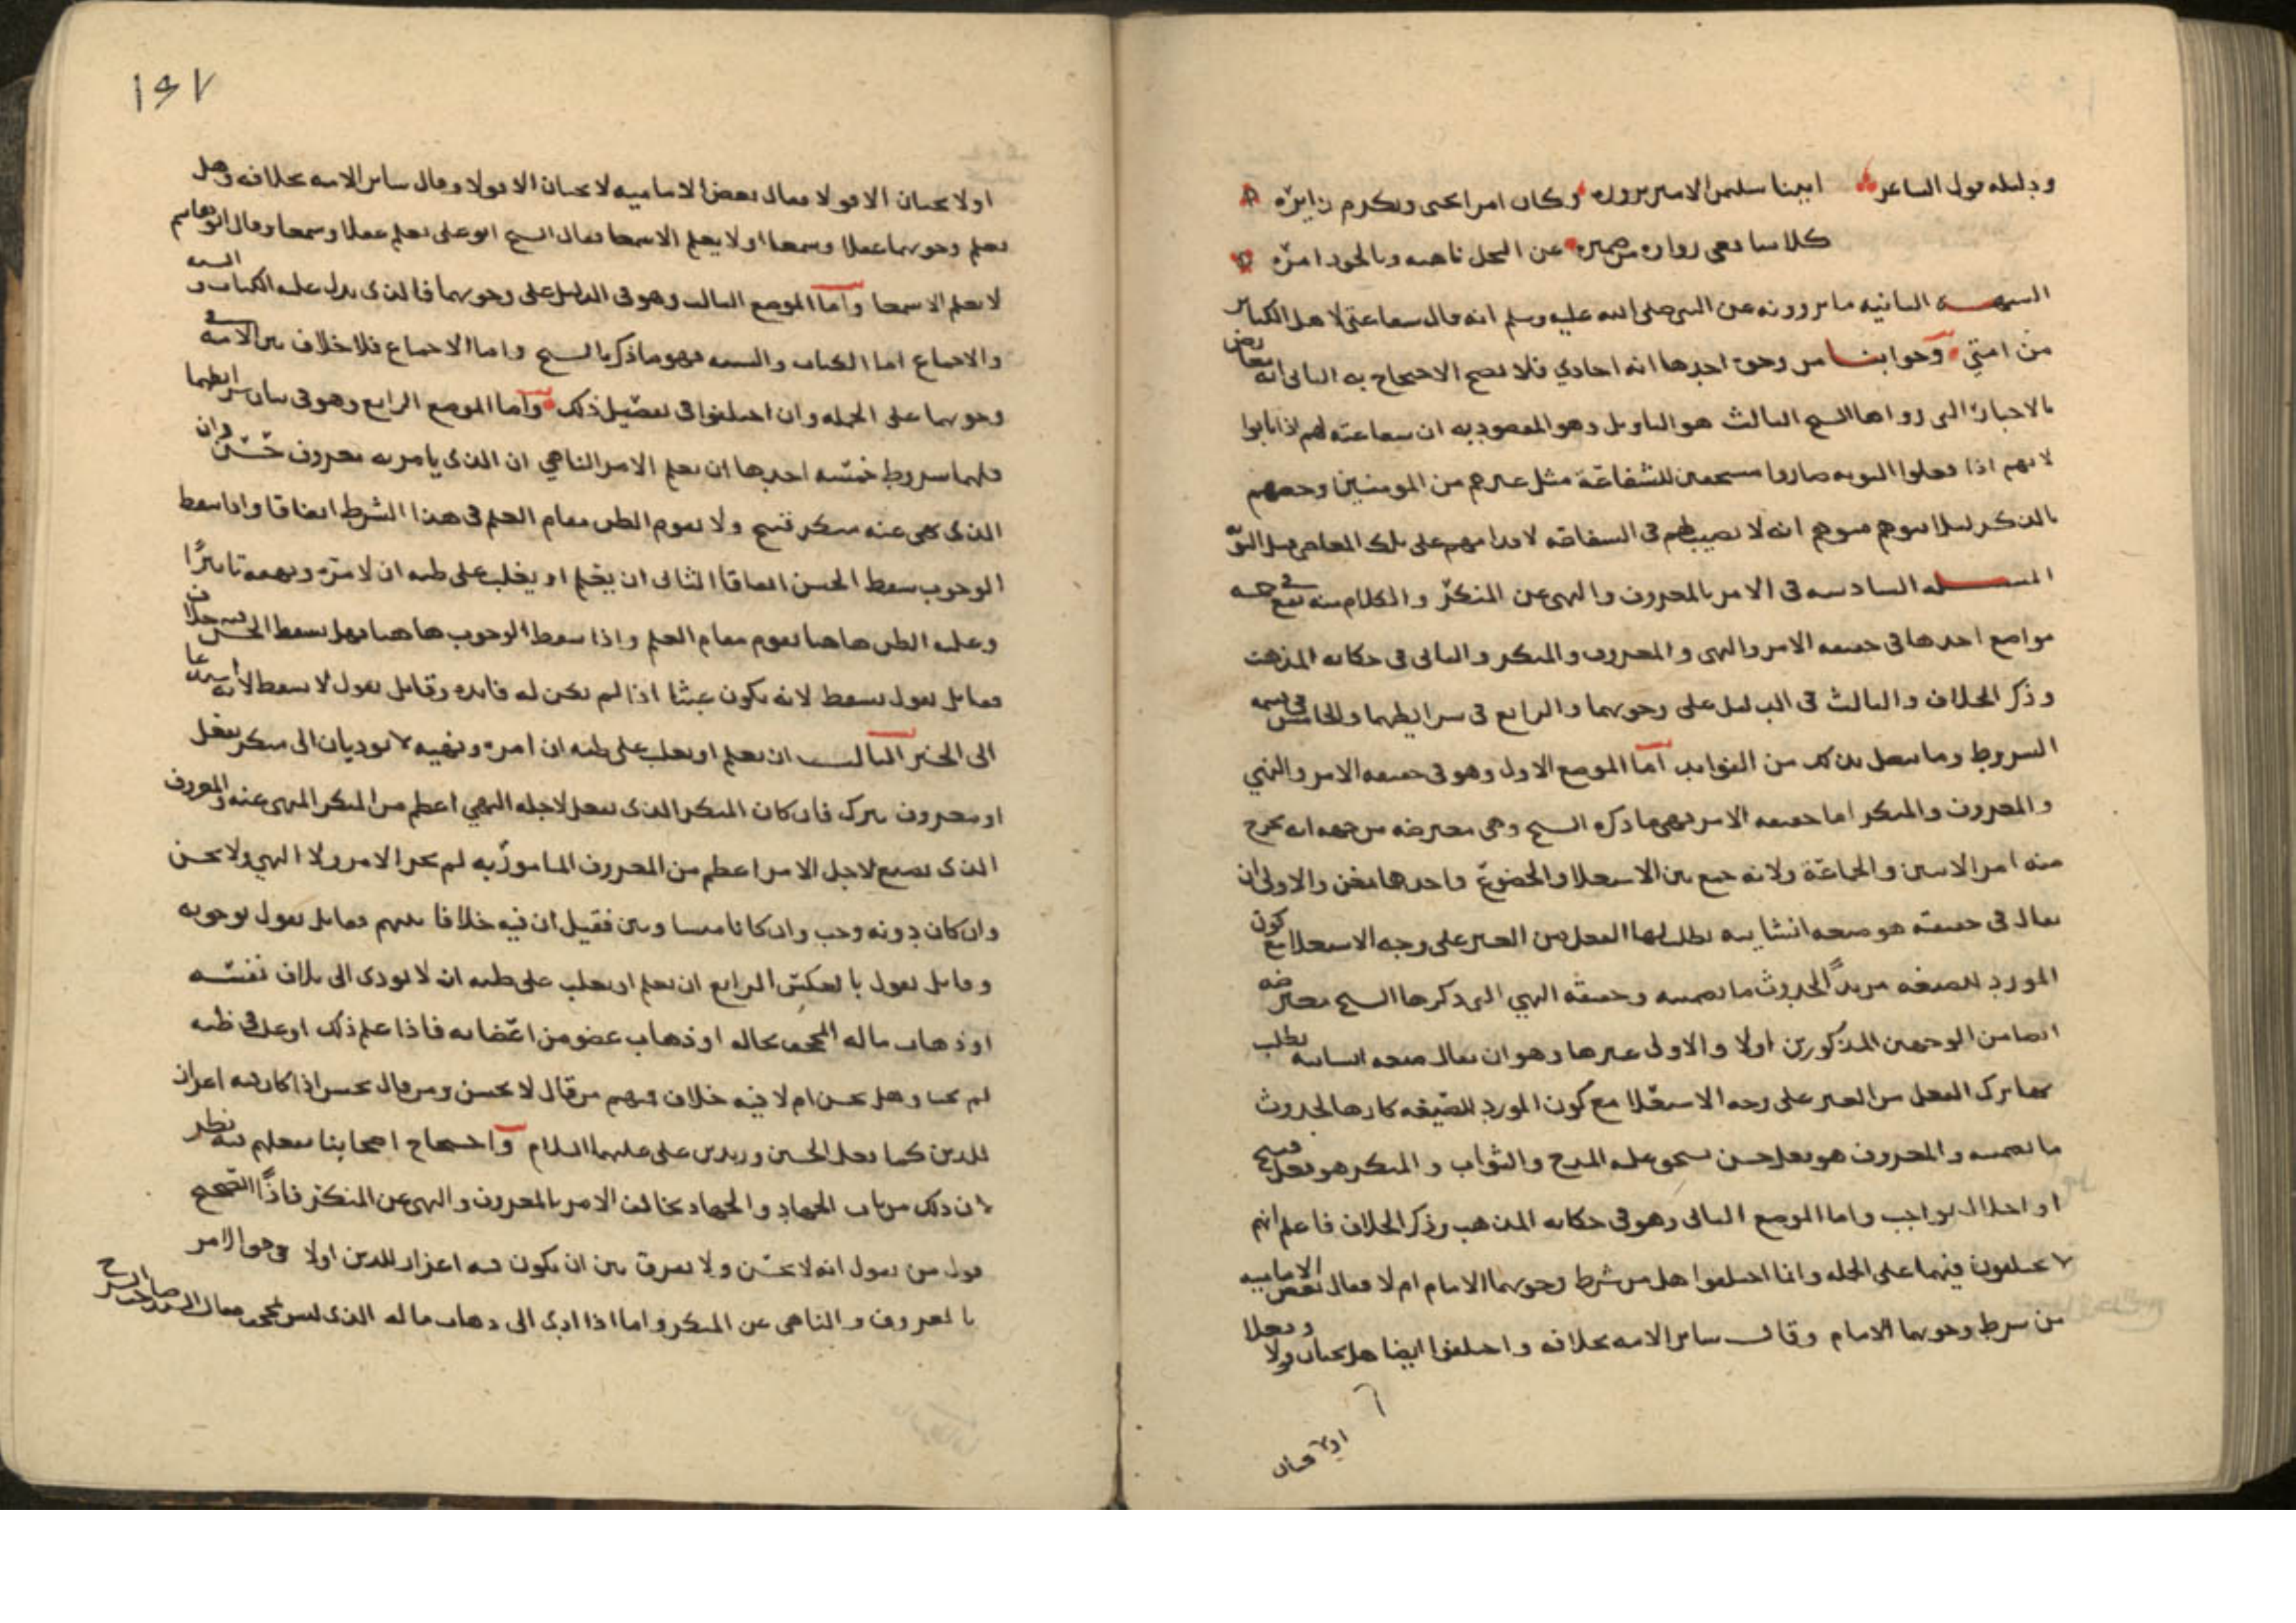 ودليله قول الشاعر اتينا سليمن الامير نزوره وكان امرا يحيى ويكرم زايره
كلا شافعي زواره من ضميره عن البخل ناهيه وبالجود امره
الشبهة الثانيه ما يروونه عن النبي صلى الله عليه وسلم انه قال شفاعتي لاهل الكباير
من امتي وجوابنا من وجوه احدها انه احادي فلا يصح الاحتجاج به الثاني انه معارض
بالاخبار التي رواها الشيخ الثالث هو التاويل وهو المقصود به ان شفاعته لهم اذا تابوا
لانهم اذا فعلوا التوبه صاروا مستحقين للشفاعة مثل غيرهم من المومنين وخصهم
بالذكر ليلا يتوهم متوهم انه لا نصيب لهم في الشفاعه لاقدامهم على تلك المعاصي قبل التوبه
المسئله السادسه في الامر بالمعروف والنهي عن المنكر والكلام منه يقع في خمسه
مواضع احدها في حقيقه الامر والنهي والمعروف والمنكر والثاني في حكايه المذهب
وذكر الخلاف والثالث في الدليل على وجوبهما والرابع في شرايطهما والخامس في قسمه
الشروط وما يتصل بذلك من الفوايد اما الموضع الاول وهو في حقيقه الامر والنهي
والمعروف والمنكر اما حقيقه الامر فهي ما ذكره الشيخ وهي معترضه من جهه انه يخرج
منه امر الاثنين والجماعة ولانه جمع بين الاستعلا والخضوع واحدها يغن والاولى ان
يقال في حقيقته هو صيغه انشاييه يطلب بها الفعل من الغير على وجه الاستعلا مع كون
المورد للصيغه مريدا لحدوث ما تضمنته وحقيقة النهي التي ذكرها الشيخ معترضه
ايضا من الوجهين المذكورين اولا والاولى غيرها وهو ان يقال صيغه انشاييه يطلب
بها ترك الفعل من الغير على وجه الاستعلا مع كون المورد للصيغه كارها لحدوث
ما تضمنته والمعروف هو فعل حسن يستحق عليه المدح والثواب والمنكر هو فعل قبيح
او اخلال بواجب واما الموضع الثاني وهو في حكايه المذهب وذكر الخلاف فاعلم انهم
لا يختلفون فيهما على الجمله وانما اختلفوا هل من شرط وجوبهما الامام ام لا فقال بعض الاماميه
من شرط وجوبهما الامام وقال ساير الامه بخلافه واختلفوا ايضا هل يجبان قولا وفعلا
اولا يجبان
١٤٧
اولا يجبان الا قولا فقال بعض الاماميه لا يجبان الا قولا وقال ساير الامه بخلافه وهل
يعلم وجوبهما عقلا وسمعا اولا يعلم الا سمعا فقال الشيخ ابو علي يعلم عقلا وسمعا وقال ابو هاشم
لا يعلم الا سمعا واما الموضع الثالث وهو في الدليل على وجوبهما فالذي يدل عليه الكتاب والسنه
والاجماع اما الكتاب والسنه فهو ما ذكره الشيخ واما الاجماع فلا خلاف بين الامه في
وجوبهما على الجمله وان اختلفوا في تفصيل ذلك واما الموضع الرابع وهو في بيان شرايطهما
فلهما شروط خمسه احدها ان يعلم الامر الناهي ان الذي يامر به معروف حسن وان
الذي نهى عنه منكر قبيح ولا يقوم الظن مقام العلم في هذا الشرط اتفاقا واذا سقط
الوجوب سقط الحسن اتفاقا الثاني ان يعلم او يغلب على ظنه ان لامره ونهيه تاثيرا
وغلبه الظن هاهنا تقوم مقام العلم واذا سقط الوجوب هاهنا فهل يسقط الحسن فيه خلاف
فقايل يقول يسقط لانه يكون عبثا اذا لم يكن له فايده وقايل يقول لا يسقط لانه استدعا
الى الخير الثالث ان يعلم او يغلب على ظنه ان امره ونهيه لا يوديان الى منكر يفعل
او معروف يترك فان كان المنكر الذي يفعل لاجله النهي اعظم من المنكر المنهى عنه والمعروف
الذي يضيع لاجل الامر اعظم من المعروف المامور به لم يجز الامر ولا النهي ولا يحسن
وان كان دونه وجب وان كانا متساويين فقيل ان فيه خلافا بينهم فقايل يقول بوجوبه
وقايل يقول بالعكس الرابع ان يعلم او يغلب على ظنه ان لا يودي الى تلاف نفسه
او ذهاب ماله المجحف بحاله او ذهاب عضو من اعضايه فاذا علم ذلك او غلب في ظنه
لم يجبا وهل يحسن ام لا فيه خلاف فمنهم من قال لا يحسن ومن قال يحسن اذا كان فيه اعزاز
للدين كما فعل الحسين وزيد بن علي عليهما السلام واحتجاج اصحابنا بفعلهم فيه نظر
لان ذلك من باب الجهاد والجهاد يخالف الامر بالمعروف والنهي عن المنكر فاذا الصحيح
قول من يقول انه لا يحسن ولا يفرق بين ان يكون فيه اعزاز للدين اولا في حق الامر
بالمعروف والناهي عن المنكر واما اذا ادى الى ذهاب ماله الذي ليس بمجحف فقال السيد صاحب الشرح